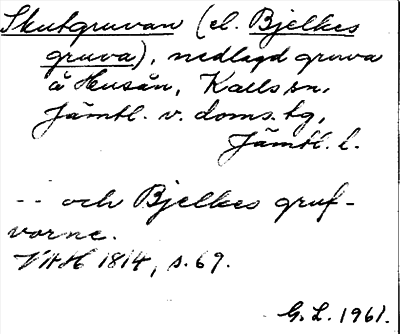 Skutgruvan (el. Bjelkes
gruva), nedlagd gruva
å Huså​n, Kalls sn,
Jämtl. v. doms. tg,
Jämtl. l.
-- och Bjelkes gruf-
vorne.
VAH 1814, s. 69.
G. L. 1961.